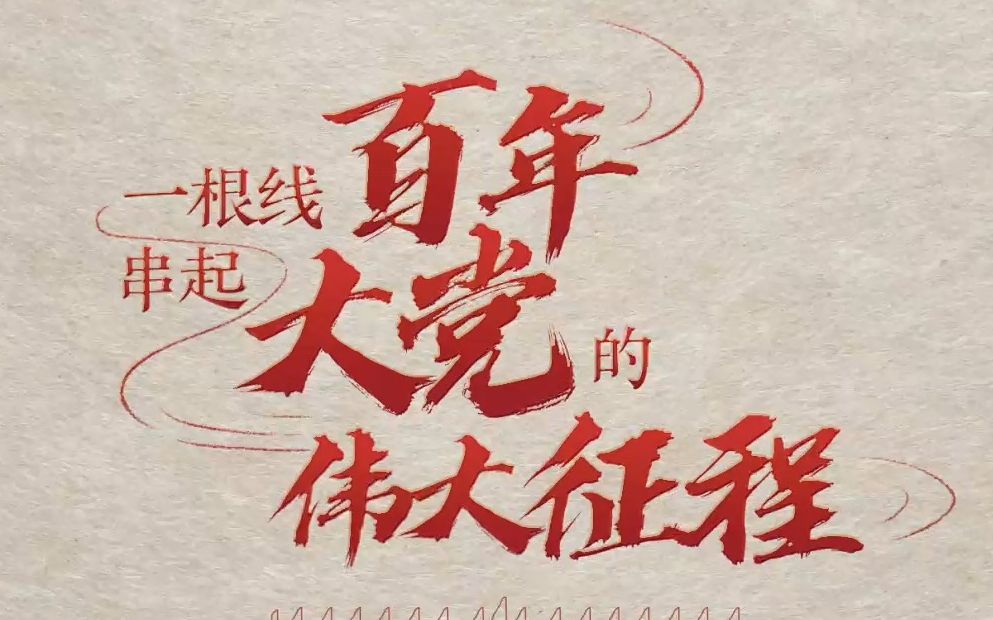 一根线
串起
百年
大党
的
伟大征程